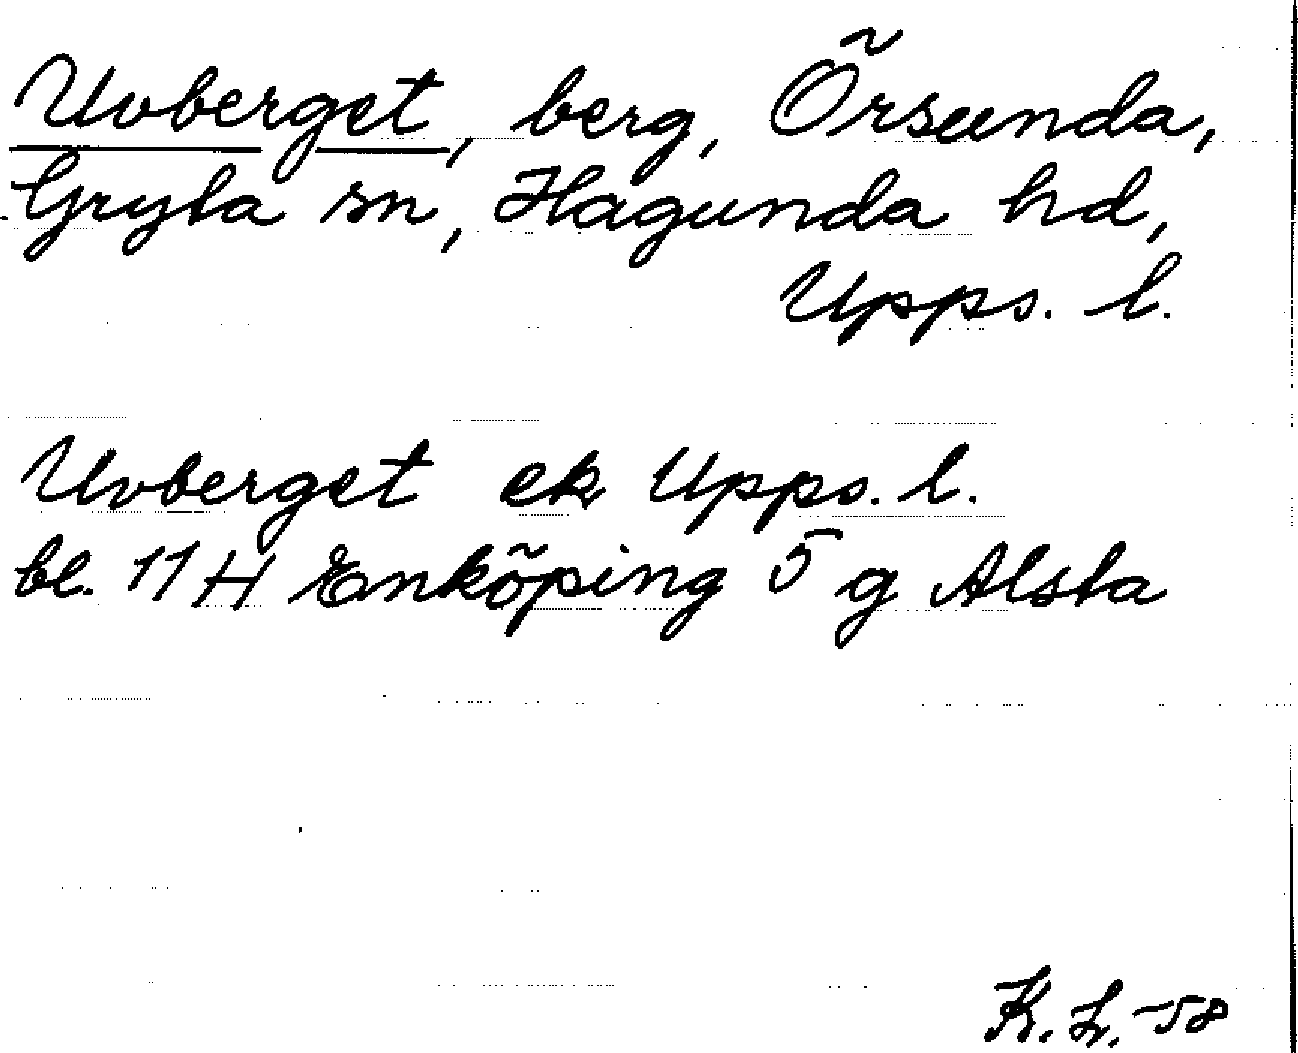 Uvberget, berg, Örsunda,
Gryta sn, Hagunda hd,
Upps. l.
Uvberget ek Upps. l.
bl. 11 H Enköping 5 g Alsta
K. L. -58